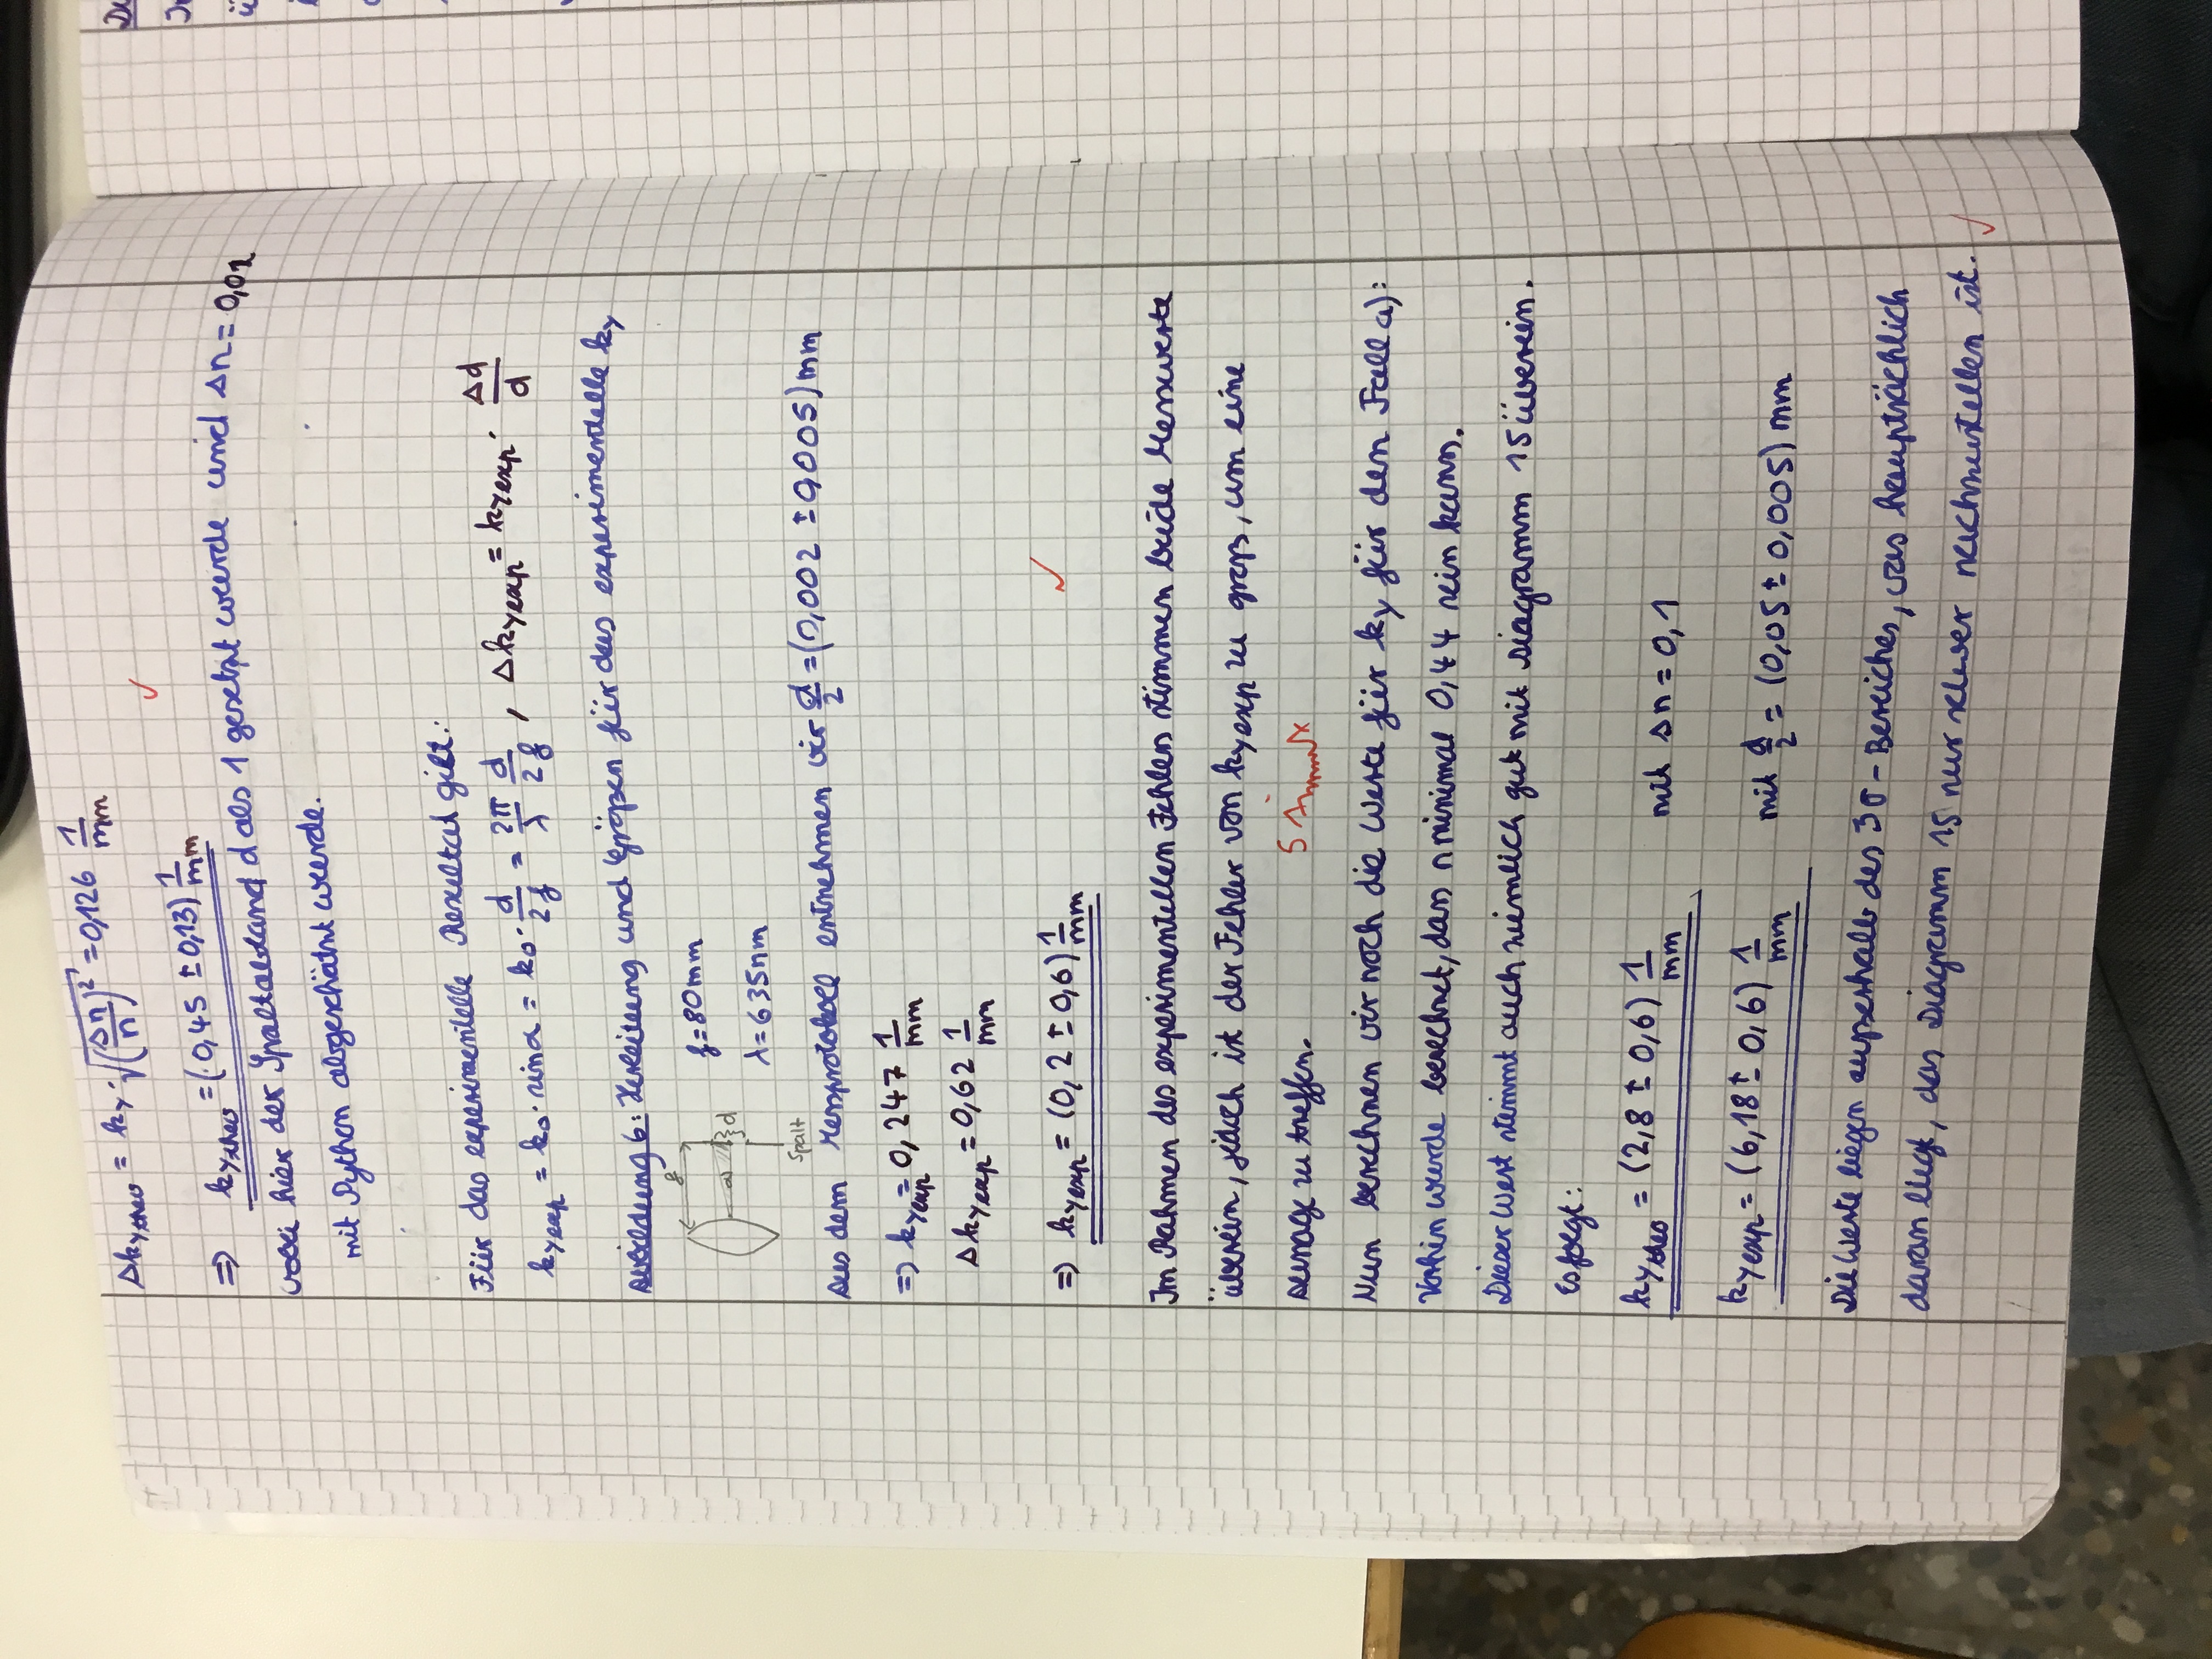 Δk_ytheo = k_y · √(Δn/n)² = 0,126 1/mm
⇒ k_ytheo = (0,45 ± 0,13) 1/mm ✓
wobei hier der Spaltabstand d als 1 gesetzt wurde und Δn = 0,01
mit Python abgeschätzt wurde.
Für das experimentelle Resultat gilt:
k_yexp = k₀ · sinα = k₀ · d/2f = 2π/λ d/2f , Δk_yexp = k_yexp · Δd/d
Abbildung 6: Herleitung und Größen für das experimentelle k_y
f
f = 80mm
α d
λ = 635nm
Spalt
Aus dem Messprotokoll entnehmen wir d/2 = (0,002 ± 0,005) mm
⇒ k_yexp = 0,247 1/mm
Δk_yexp = 0,62 1/mm
⇒ k_yexp = (0,2 ± 0,6) 1/mm ✓
Im Rahmen des experimentellen Fehlers stimmen beide Messwerte
überein, jedoch ist der Fehler von k_yexp zu groß, um eine
Aussage zu treffen.
Nun berechnen wir noch die Werte für k_y für den Fall a):
Vorhin wurde berechnet, dass n minimal 0,44 sein kann.
Dieser Wert stimmt auch ziemlich gut mit Diagramm 15 überein.
Es folgt:
k_ytheo = (2,8 ± 0,6) 1/mm mit Δn = 0,1
k_yexp = (6,18 ± 0,6) 1/mm mit d/2 = (0,05 ± 0,005) mm
Die Werte liegen außerhalb des 3σ-Bereiches, was hauptsächlich
daran liegt, das Diagramm 15 nur schwer nachzustellen ist. ✓